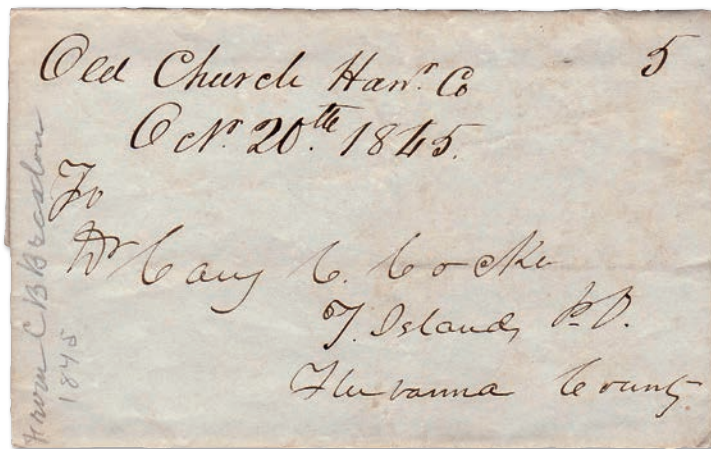 Old Church Han.r Co
5
Oct.r 20.th 1845.
To
Dr Cary C. Cocke
7. Islands P.O.
Fluvanna County
From C B Braxton
1845